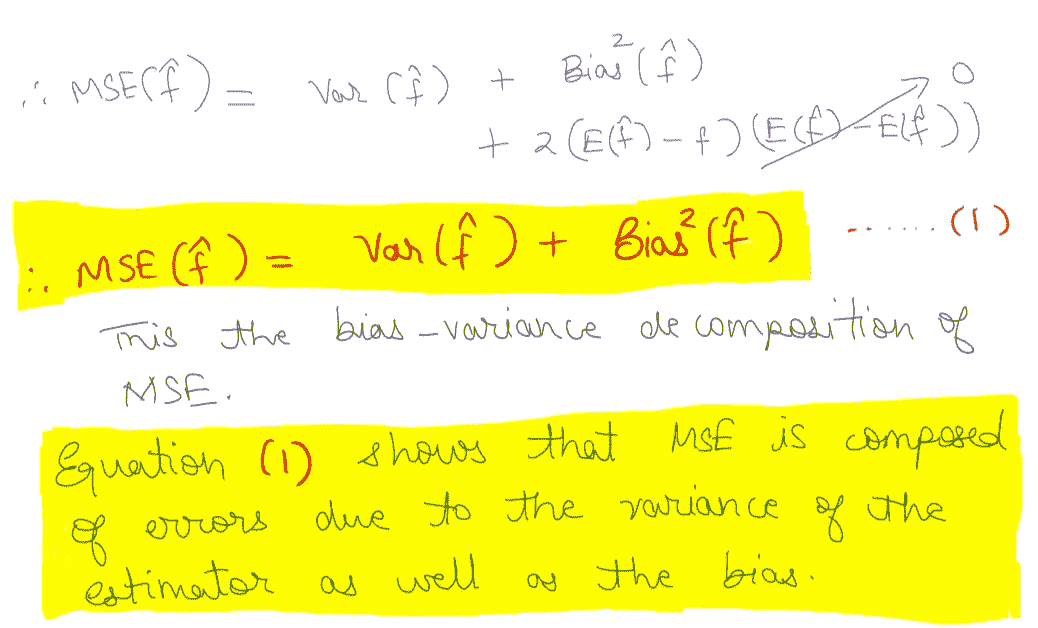 ∴ MSE(f̂) = Var (f̂) + Bias²(f̂)
+ 2(E(f̂) - f)(E(f̂) - E(f̂)) 0
∴ MSE(f̂) = Var(f̂) + Bias²(f̂) ...... (1)
This the bias-variance decomposition of
MSE.
Equation (1) shows that MSE is composed
of errors due to the variance of the
estimator as well as the bias.